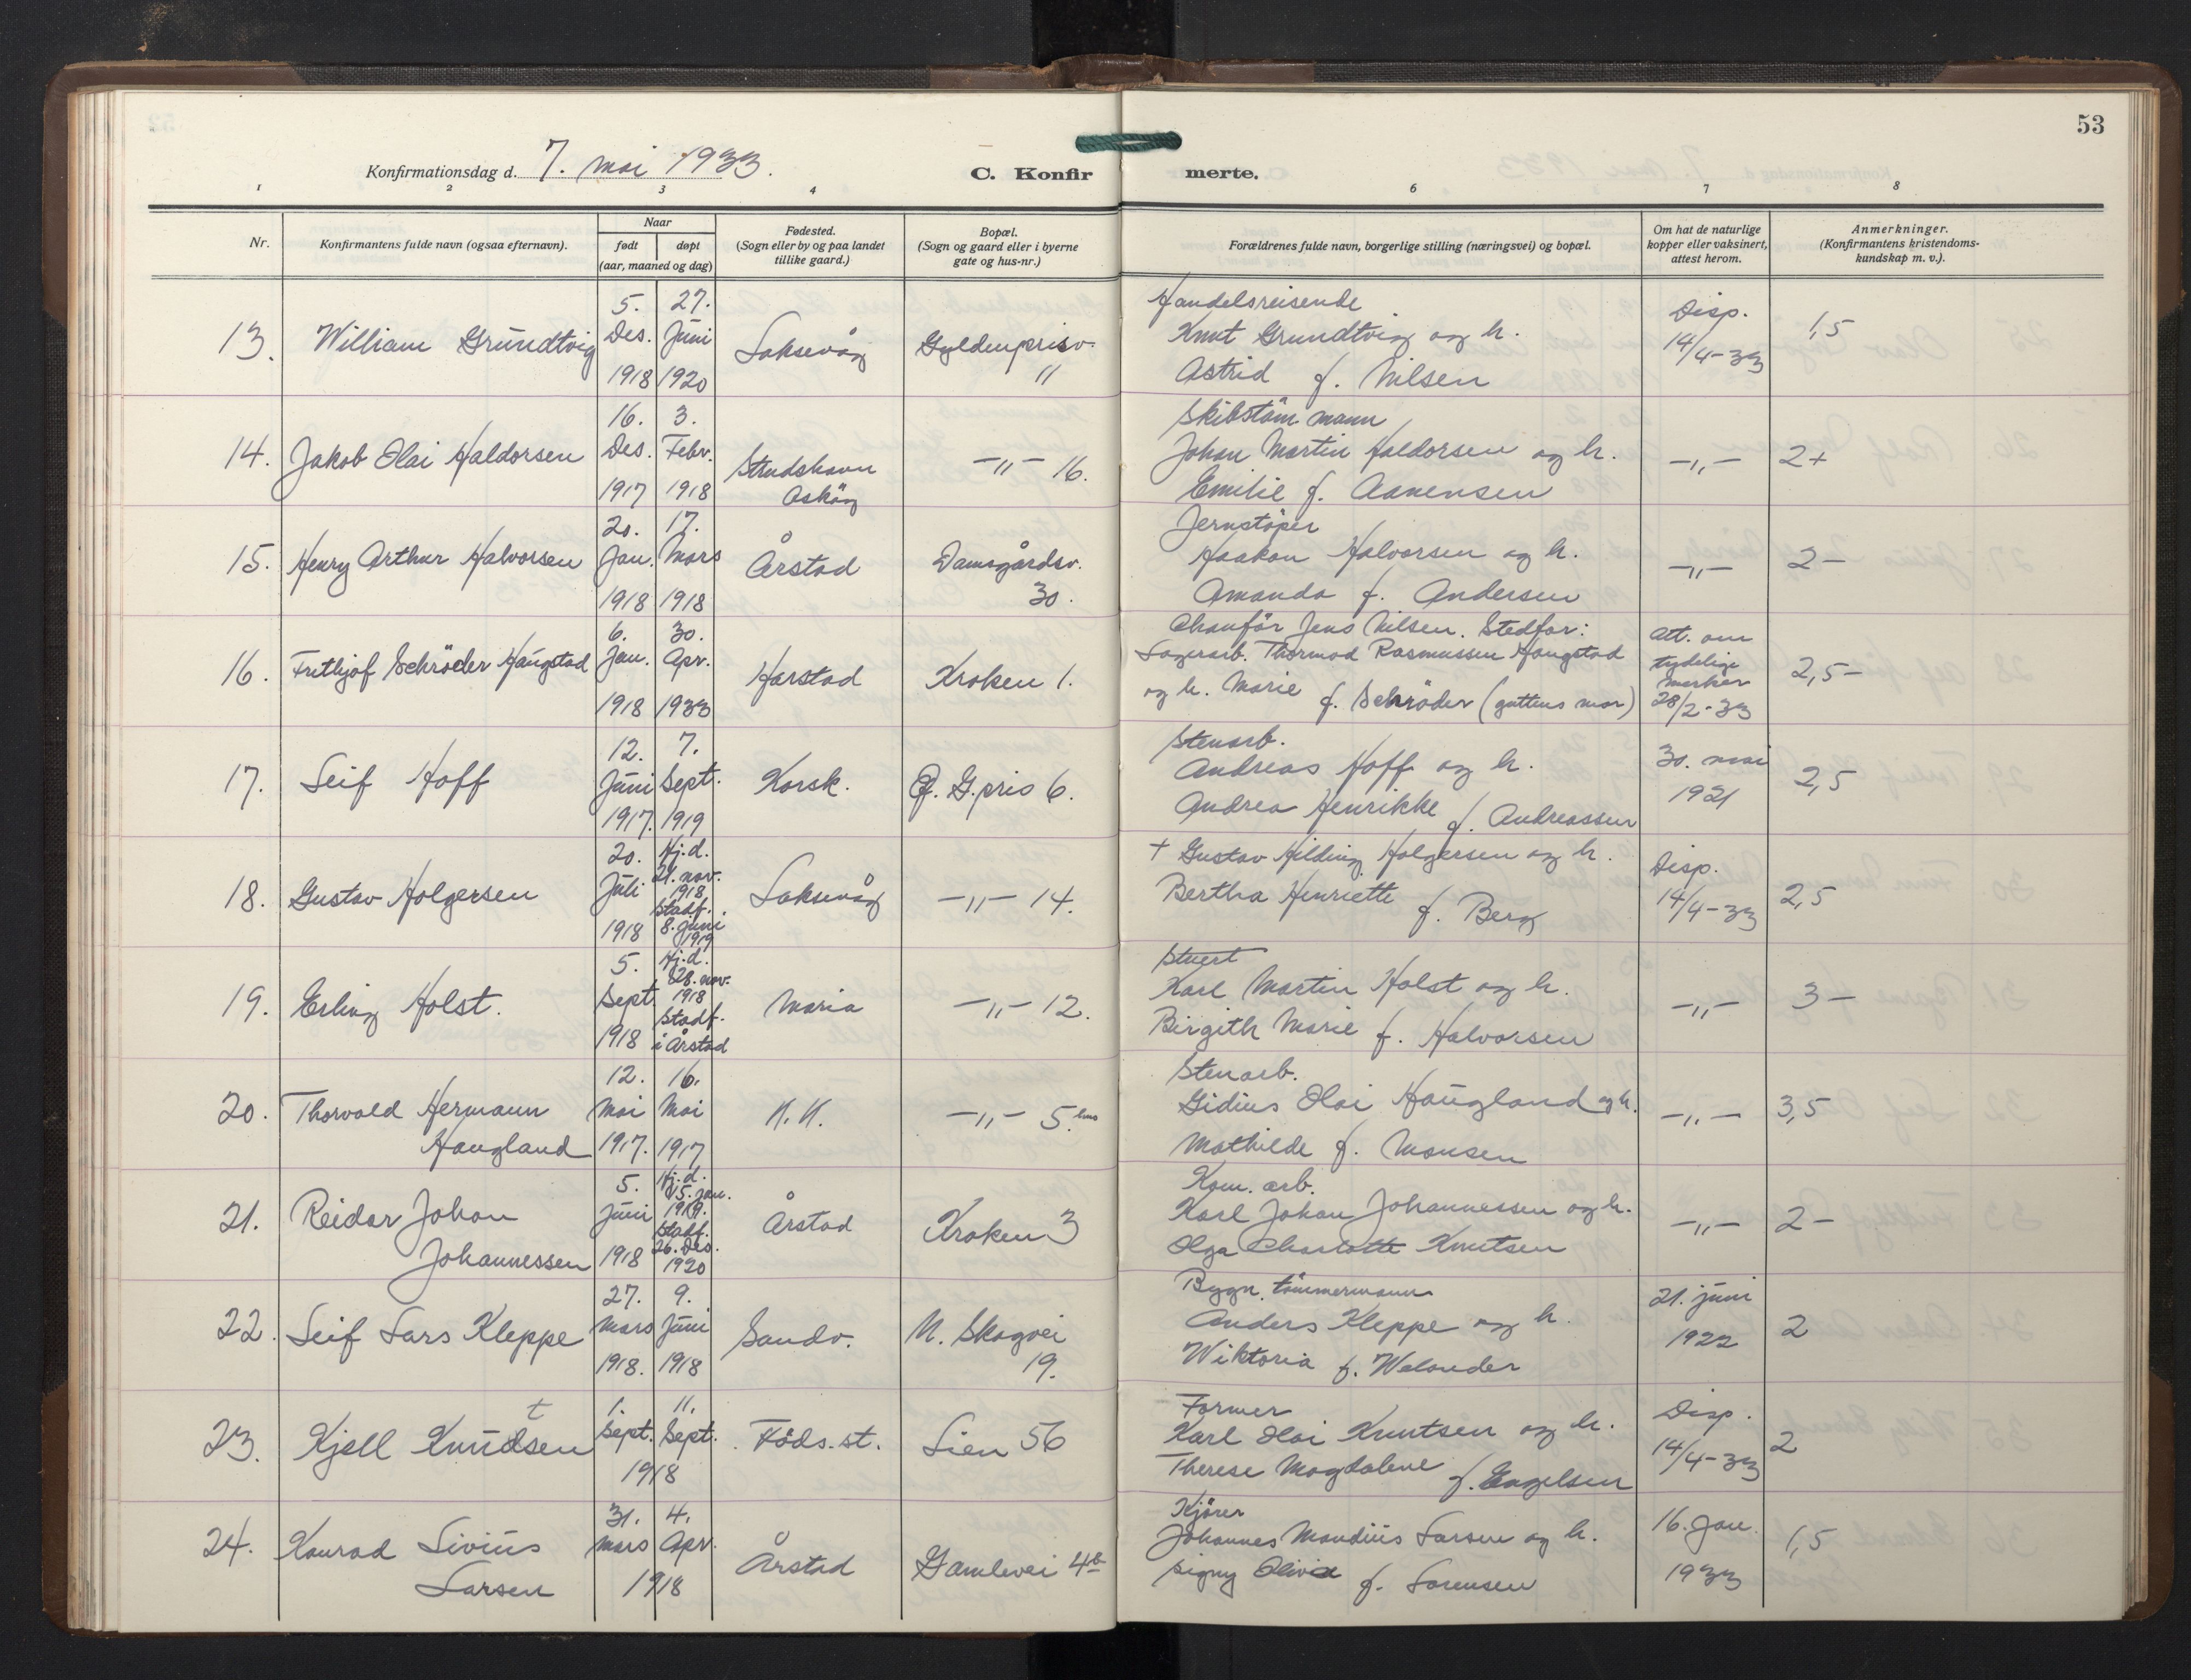 53
Konfirmationsdag d. 7. mai 1933.
C. Konfir
merte.
1 2 3 4 6 7 8
Nr.
Konfirmantens fulde navn (ogsaa efternavn).
Naar
født døpt
(aar, maaned og dag)
Fødested.
(Sogn eller by og paa landet
tillike gaard.)
Bopæl.
(Sogn og gaard eller i byerne
gate og hus-nr.)
Forældrenes fulde navn, borgerlige stilling (næringsvei) og bopæl.
Om hat de naturlige
kopper eller vaksinert,
attest herom.
Anmerkninger.
(Konfirmantens kristendoms-
kundskap m. v.).
13. William Grundtvig
5. Des. 1918
27. Juni 1920
Laksevåg
Gyldenprisv.
11
Handelsreisende
Knut Grundtvig og h.
Astrid f. Nilsen
Disp.
14/4-33
1,5
14. Jakob Olai Haldorsen
16. Des. 1917
3. Febr. 1918
Strudshavn
Askøy
-"- 16.
Skibstöm. mann
Johan Martin Haldorsen og h.
Emilie f. Aanensen
-"-
2+
15. Henry Arthur Halvorsen
20. Jan. 1918
17. Mars 1918
Årstad
Damsgårdsv.
30.
Jernstöper
Haakon Halvorsen og h.
Amanda f. Andersen
-"-
2-
16. Frithjof Schröder Haugstad
6. Jan. 1918
30. Apr. 1933
Harstad
Kroken 1.
Chauför Jens Nilsen. Stedfar:
Lagerarb. Thormod Rasmussen Haugstad
og h. Marie f. Schröder (guttens mor)
Att. om
tydelige
merker
28/2-33
2,5-
17. Leif Hoff
12. Juni 1917.
7. Sept. 1919
Korsk.
G.pris 6.
Stenarb.
Andreas Hoff og h.
Andrea Henrikke f. Andreassen
30. mai
1921
2,5
18. Gustav Holgersen
20. Juli 1918
Hj.d.
21. nov.
1918
Stadf.
8. juni
1919
Laksevåg
-"- 14.
+ Gustav Hilding Holgersen og h.
Bertha Henriette f. Berg
Disp.
14/4-33
2,5
19. Erling Holst.
5. Sept. 1918
Hj.d.
28. nov.
1918
Stadf.
i Årstad
Maria
-"- 12.
Stuert
Karl Martin Holst og h.
Birgith Marie f. Halvorsen
-"-
3-
20. Thorvald Hermann
Haugland
12. Mai 1917.
16. Mai 1917
N.K.
-"- 5.
Stenarb.
Gidius Olai Haugland og h.
Mathilde f. Monsen
-"-
3,5
21. Reidar Johan
Johannessen
5. Juni 1918
Hj.d.
15. jan.
1919.
Stadf.
26. Des.
1920
Årstad
Kroken 3
Kom. arb.
Karl Johan Johannessen og h.
Olga Charlotte Knutsen
-"-
2-
22. Leif Lars Kleppe
27. Mars 1918.
9. Juni 1918
Sandv.
N. Skogvei
19.
Bygn. tömmermann
Anders Kleppe og h.
Wiktoria f. Welander
21. juni
1922
2
t
23. Kjell Knudsen
1. Sept. 11. Sept.
1918
Föds.st.
Lien 56
Former
Karl Olai Knutsen og h.
Therese Magdalene f. Engelsen
Disp.
14/4-33
2
24. Konrad Livius
Larsen
31. Mars 4. Apr.
1918
Årstad
Gamlevei 4b
Kjörer
Johannes Mandius Larsen og h.
Signy Olivia f. Sorensen
16. Jan.
1933
1,5